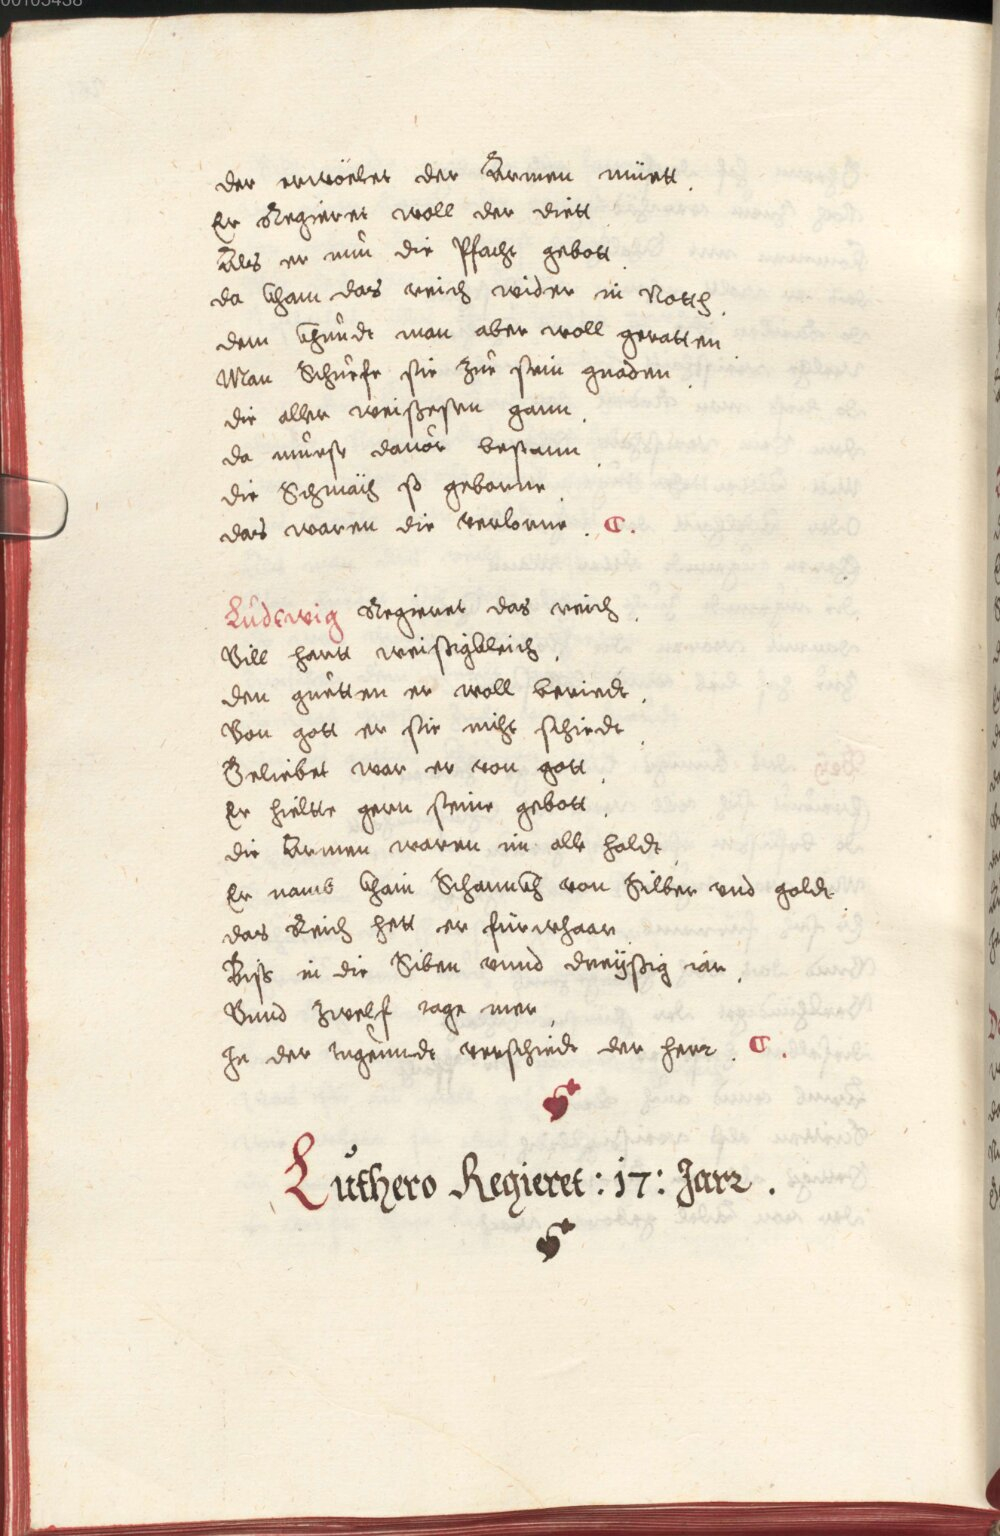 00105438
der erwöelet der Armen müett.
Er Regieret woll der diett
Als er nun die Pfacht gebott.
da kham das reich wider in Notth.
dem khundt man aber woll geratten
Man Schuefe sie zue sein gnaden.
die aller weißesten gann.
da mueste dauor bestann.
die Schmäch so geborne.
das waren die verlorne. C.
Ludewig Regieret das reich.
Vill hartt weißigkleich.
den guetten er woll beriedt.
Von gott er sie nicht schiedt.
Geliebet war er von gott.
Er hieltte gern seine gebott.
die Armen waren im alle holdt.
Er namb khain Schannckh von Silber vnd goldt.
das Reich hett er fürwhaar
Biß in die Siben vnnd dreyßig iar.
Vnnd zwelf tage mer.
In der tugenndt verschiedt der herr. C.
Luthero Regieret: 17: Jarr.